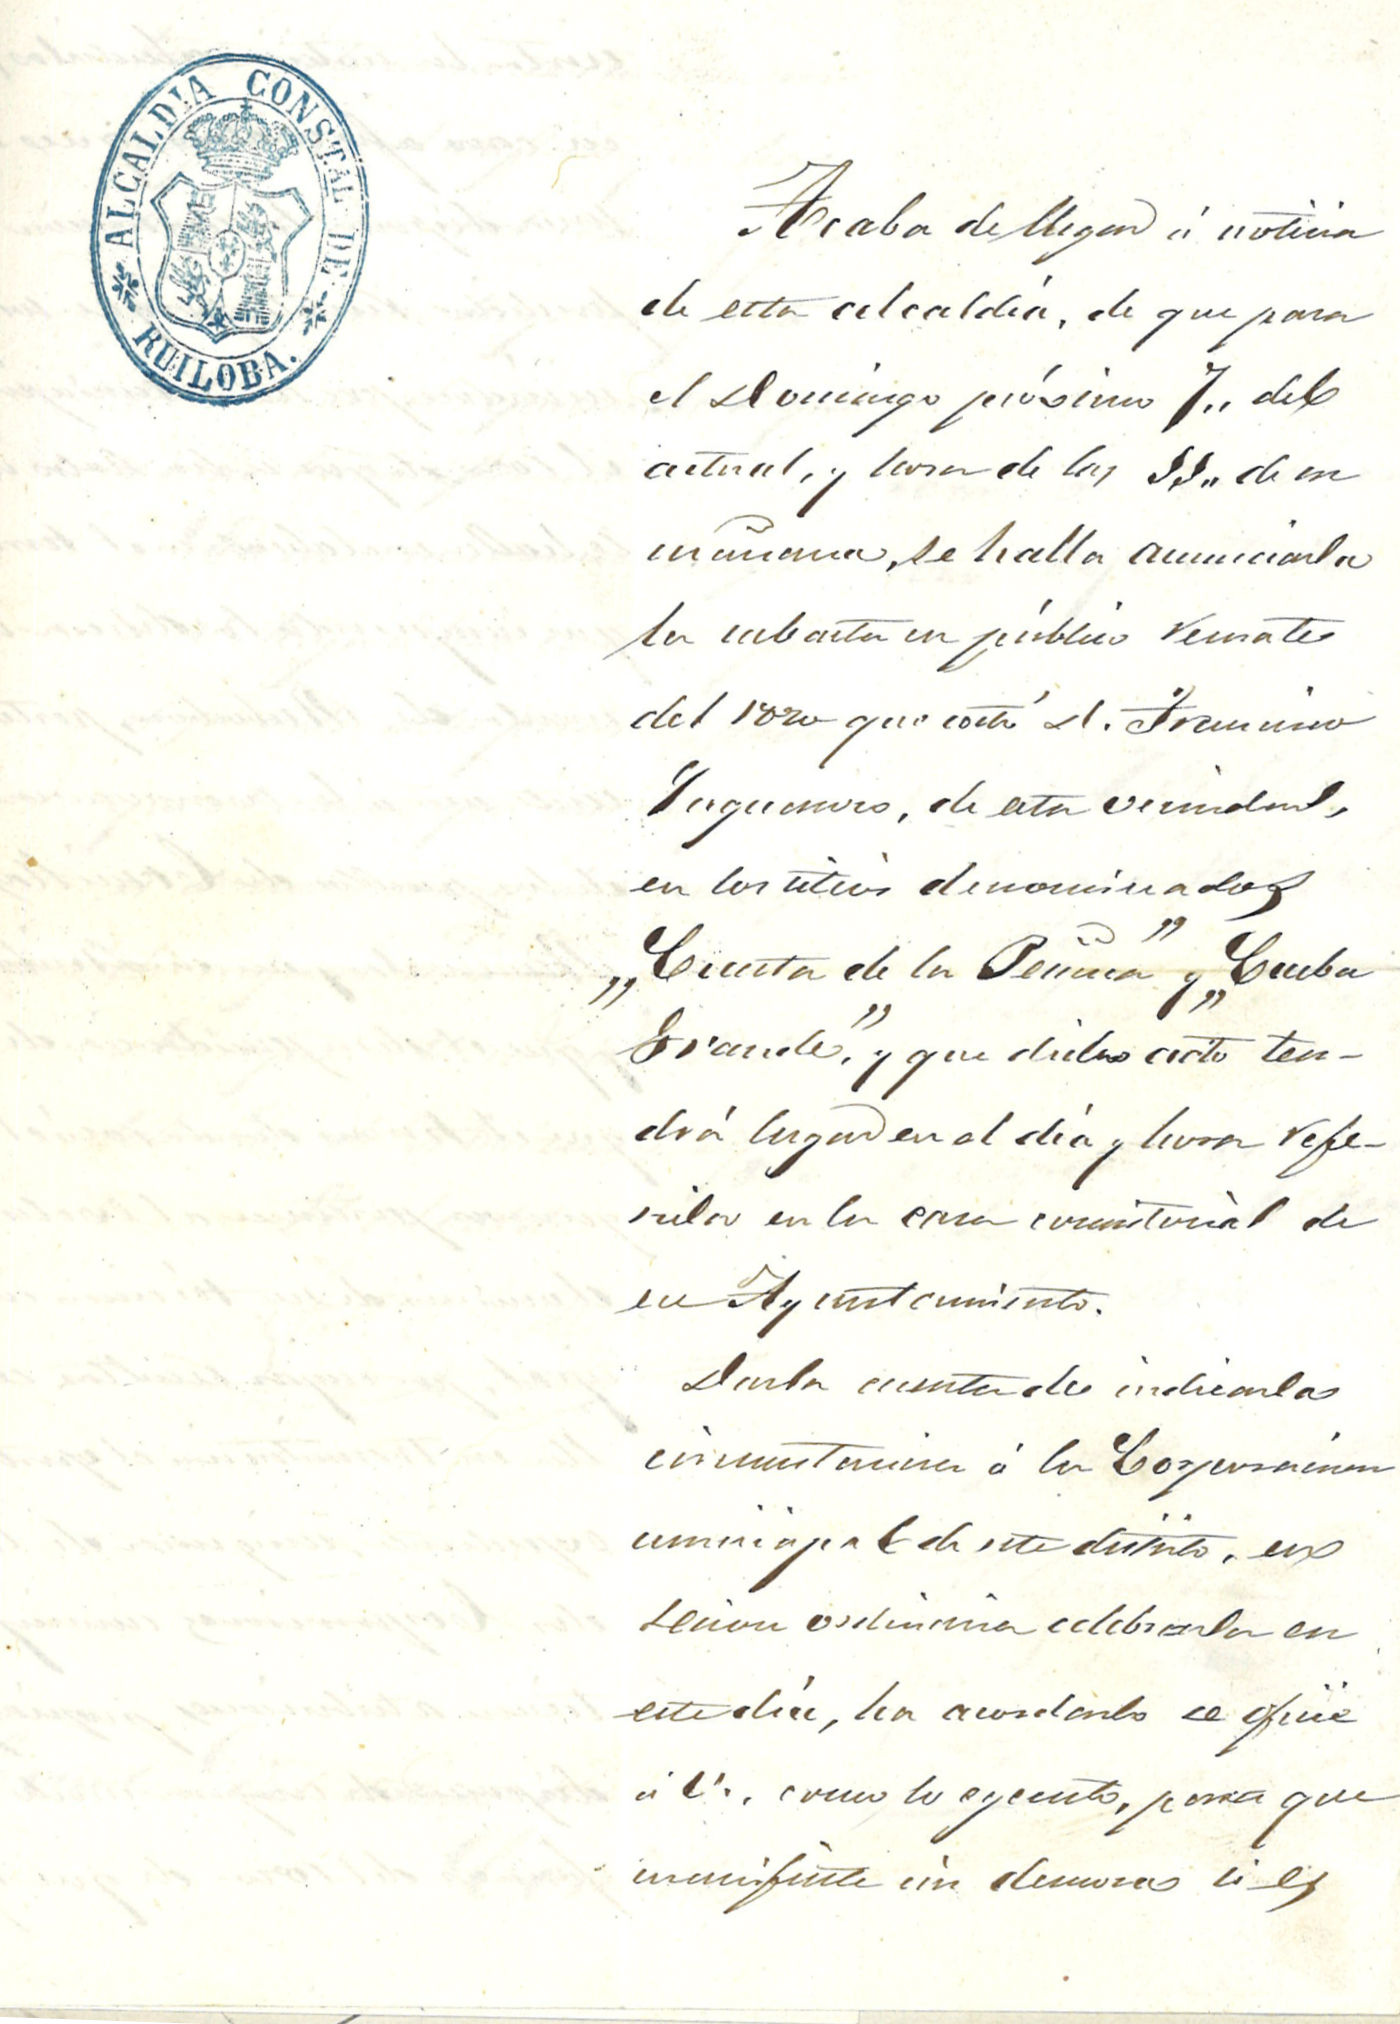 ALCALDIA CONSTAL DE
RUILOBA.
Acaba de llegar á noticia
de esta alcaldía, de que para
el Domingo próximo 7,, del
actual, y hora de las 11,, de su
mañana, se halla anunciada
la subasta en público remate
del rozo que cortó D. Francisco
de esta vecindad,
en los sitios denominados
„Cuesta de la Peñia” y „Cueba
Grande”, y que dicho acto ten-
drá lugar en el día y hora refe-
rida en la casa consistorial de
ese Ayuntamiento.
Dada cuenta de indicadas
circunstancias á la Corporacion
municipal de este distrito, en
sesion ordinaria celebrada en
este día, ha acordado se oficie
á V., como lo egecuto, para que
manifieste sin demora si es